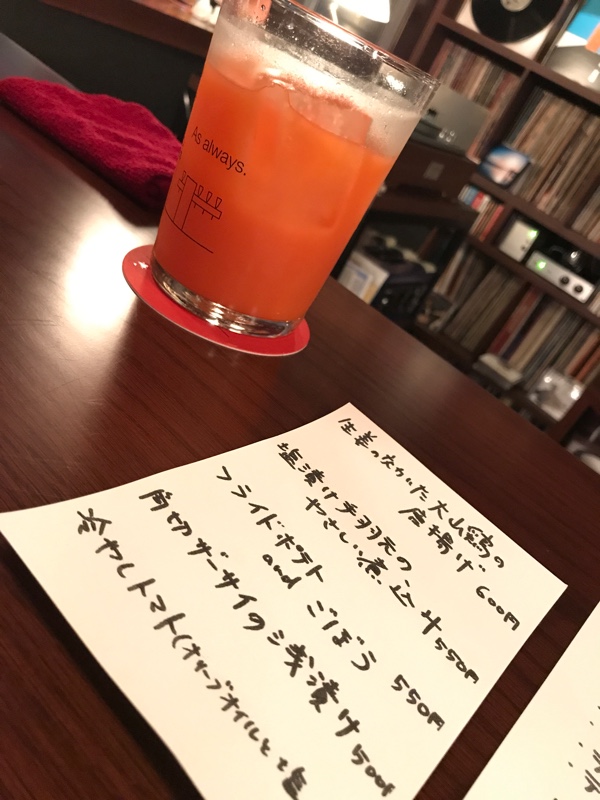 As always.
生姜の効いた大山鶏の
唐揚げ 600円
塩漬け手羽元の
やさしい煮込み 550円
フライドポテト
and ごぼう 550円
角切ザーサイの浅漬け 500円
冷やしトマト(オリーブオイルと塩